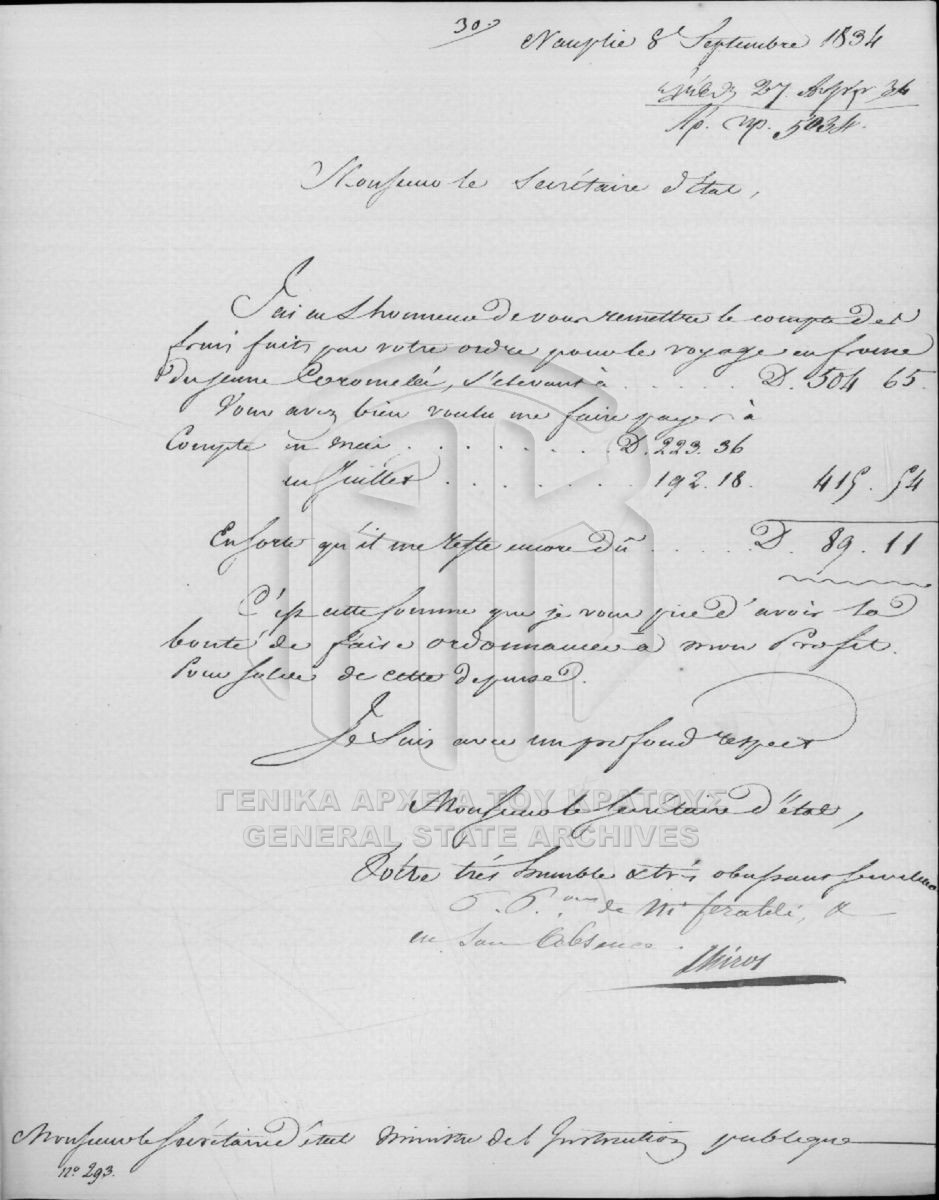 30.
Nauplie 8 Septembre 1834
27 34
Αρ. πρ. 5034.
Monsieur le Secrétaire d'État,
J'ai eu l'honneur de vous remettre le compte des
frais faits par votre ordre pour le voyage en france
du jeune Coromelá, s'elevant à . . . . . D. 504 65.
Vous avez bien voulu me faire payer à
Compte en Mai . . . . . . . D. 223. 36
en Juillet . . . . . . . 192. 18. 415. 54
En sorte qu'il me reste encore dû . . . . . D. 89. 11
C'est cette somme que je vous prie d'avoir la
bonté de faire ordonnancer à mon Profit
Pour solde de cette depense.
Je suis avec un profond respect
Monsieur le Secrétaire d'état,
ΓΕΝΙΚΑ ΑΡΧΕΙΑ ΤΟΥ ΚΡΑΤΟΥΣ
GENERAL STATE ARCHIVES
Vôtre très humble & très obeissant serviteur
P. P.on de Mr feraldi, &
en son Absence.
Monsieur le Secrétaire d'état Ministre de l'Instruction publique
No 293.